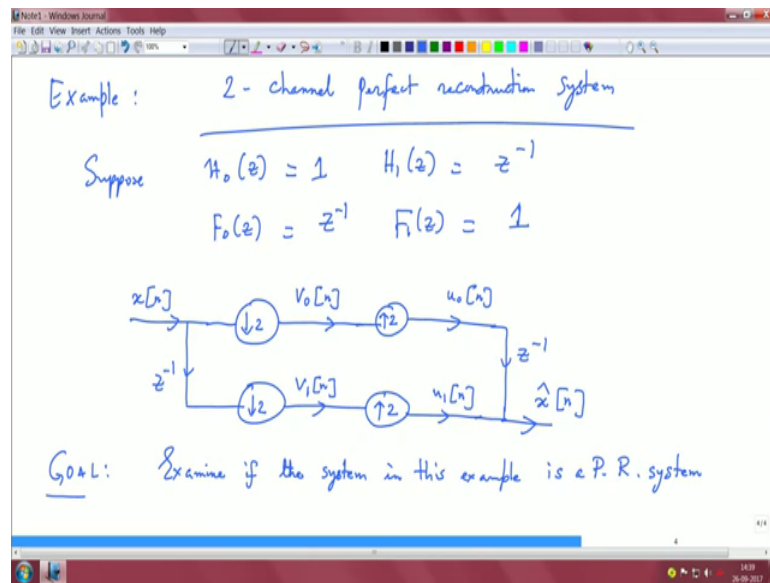 Note1 - Windows Journal
File Edit View Insert Actions Tools Help
100%
Example : 2 - channel perfect reconstruction system
Suppose H₀(z) = 1 H₁(z) = z⁻¹
F₀(z) = z⁻¹ F₁(z) = 1
x[n] ↓2 V₀[n] ↑2 u₀[n]
z⁻¹ z⁻¹
↓2 V₁[n] ↑2 u₁[n] x̂[n]
GOAL: Examine if the system in this example is a P. R. system
4/4
4
14:39
26-09-2017